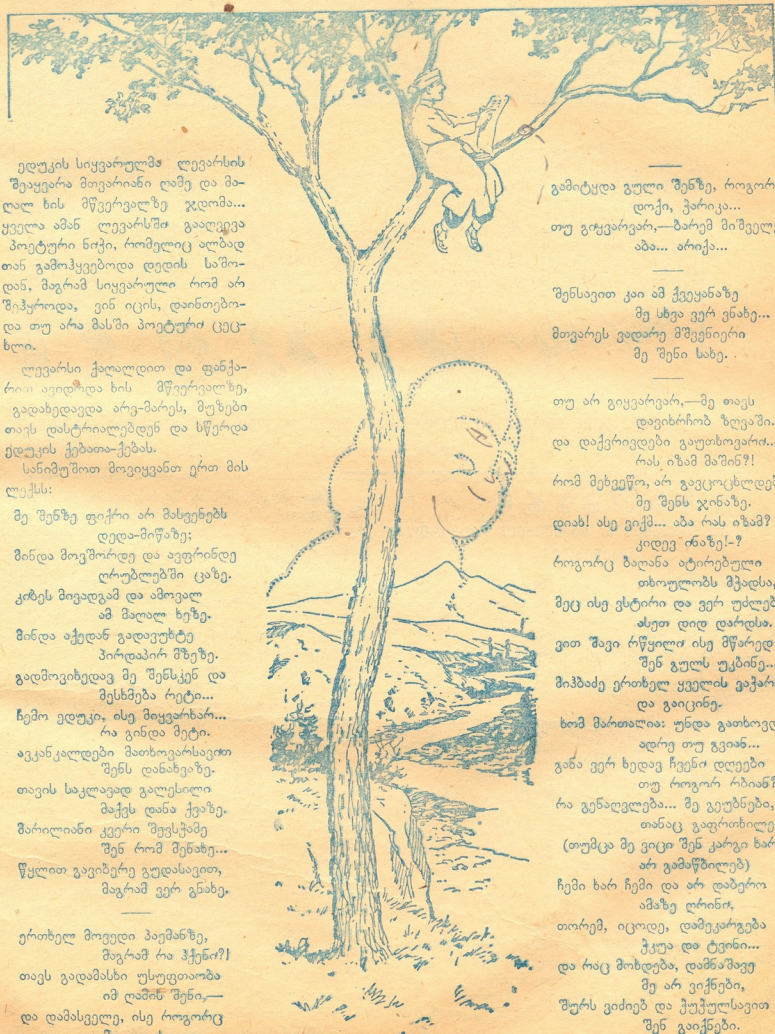 ედუკის სიყვარულმა ლევარსის
შეაყვარა მთვარიანი ღამე და მა-
ღალ ხის მწვერვალზე ჯდომა...
ყველა ამან ლევარსში გააღვივა
პოეტური ნიჭი, რომელიც ალბად
თან გამოჰყვებოდა დედის საშო-
დან, მაგრამ სიყვარული რომ არ
შეჰყროდა, ვინ იცის, დაინთებო-
და თუ არა მასში პოეტური ცეც-
ხლი.
ლევარსი ქაღალდით და ფანქა-
რით ავიდოდა ხის მწვერვალზე,
გადახედავდა არე-მარეს, მუზები
თავს დასტრიალებდენ და სწერდა
ედუკის ქებათა-ქებას.
სანიმუშოთ მოვიყვანთ ერთ მის
ლექსს:
მე შენზე ფიქრი არ მასვენებს
დედა-მიწაზე;
მინდა მოვშორდე და ავფრინდე
ღრუბლებში ცაზე.
კიბეს მივადგამ და ამოვალ
ამ მაღალ ხეზე.
მინდა აქედან გადავუხტე
პირდაპირ მზეზე.
გადმოვიხედავ მე შენსკენ და
მესხმება რეტი...
ჩემო ედუკი, ისე მიყვარხარ...
რა გინდა მეტი.
ავკანკალდები მათხოვარსავით
შენს დანახვაზე.
თავის საკლავად გალესილი
მაქვს დანა ქვაზე.
მარილიანი კვერი შევსჭამე
შენ რომ მენახე...
წყლით გავიბერე გუდასავით,
მაგრამ ვერ გნახე.
ერთხელ მოვედი პაემანზე,
მაგრამ რა ჰქენი?!
თავს გადამასხი უსუფთაობა
იმ ღამის შენი,—
და დამასველე, ისე როგორც
გამიტყდა გული შენზე, როგორც
დოქი, ჭარიკა...
თუ გიყვარვარ,—ბარემ მიშველე
აბა... არიქა...
შენსავით კაი ამ ქვეყანაზე
მე სხვა ვერ ვნახე...
მთვარეს ვადარე მშვენიერი
მე შენი სახე.
თუ არ გიყვარვარ,—მე თავს
დავიხრჩობ ზღვაში.
და დაქვრივდები გაუთხოვარი...
რას იზამ მაშინ?!
რომ მეხვეწო, არ გავცოცხლდები
მე შენს ჯინაზე.
დიახ! ასე ვიქმ... აბა რას იზამ?
კიდევ ინაზე!-?
როგორც ბაღანა ატირებული
თხოულობს მჭადსა,
მეც ისე ვსტირი და ვერ უძლებ
ასეთ დიდ დარდსა.
ვით შავი რწყილი ისე მწარედ
შენ გულს უკბინე...
მიჰბაძე ერთხელ ყველის ვაჭარს
და გაიცინე.
ხომ მართალია: უნდა გათხოვდე
ადრე თუ გვიან...
განა ვერ ხედავ ჩვენი დღეები
თუ როგორ რბიან?
რა გენაღვლება... მე გეუბნები,
თანაც გაფრთხილებ
(თუმცა მე ვიცი შენ კარგი ხარ
არ გამაწბილებ)
ჩემი ხარ ჩემი და არ დაბერო
ამაზე ღრინი,
თორემ, იცოდე, დამეკარგება
ჭკუა და ტვინი...
და რაც მოხდება, დამნაშავე
მე არ ვიქნები,
შურს ვიძიებ და ჭუჭულსავით
შენ გაიქნები.